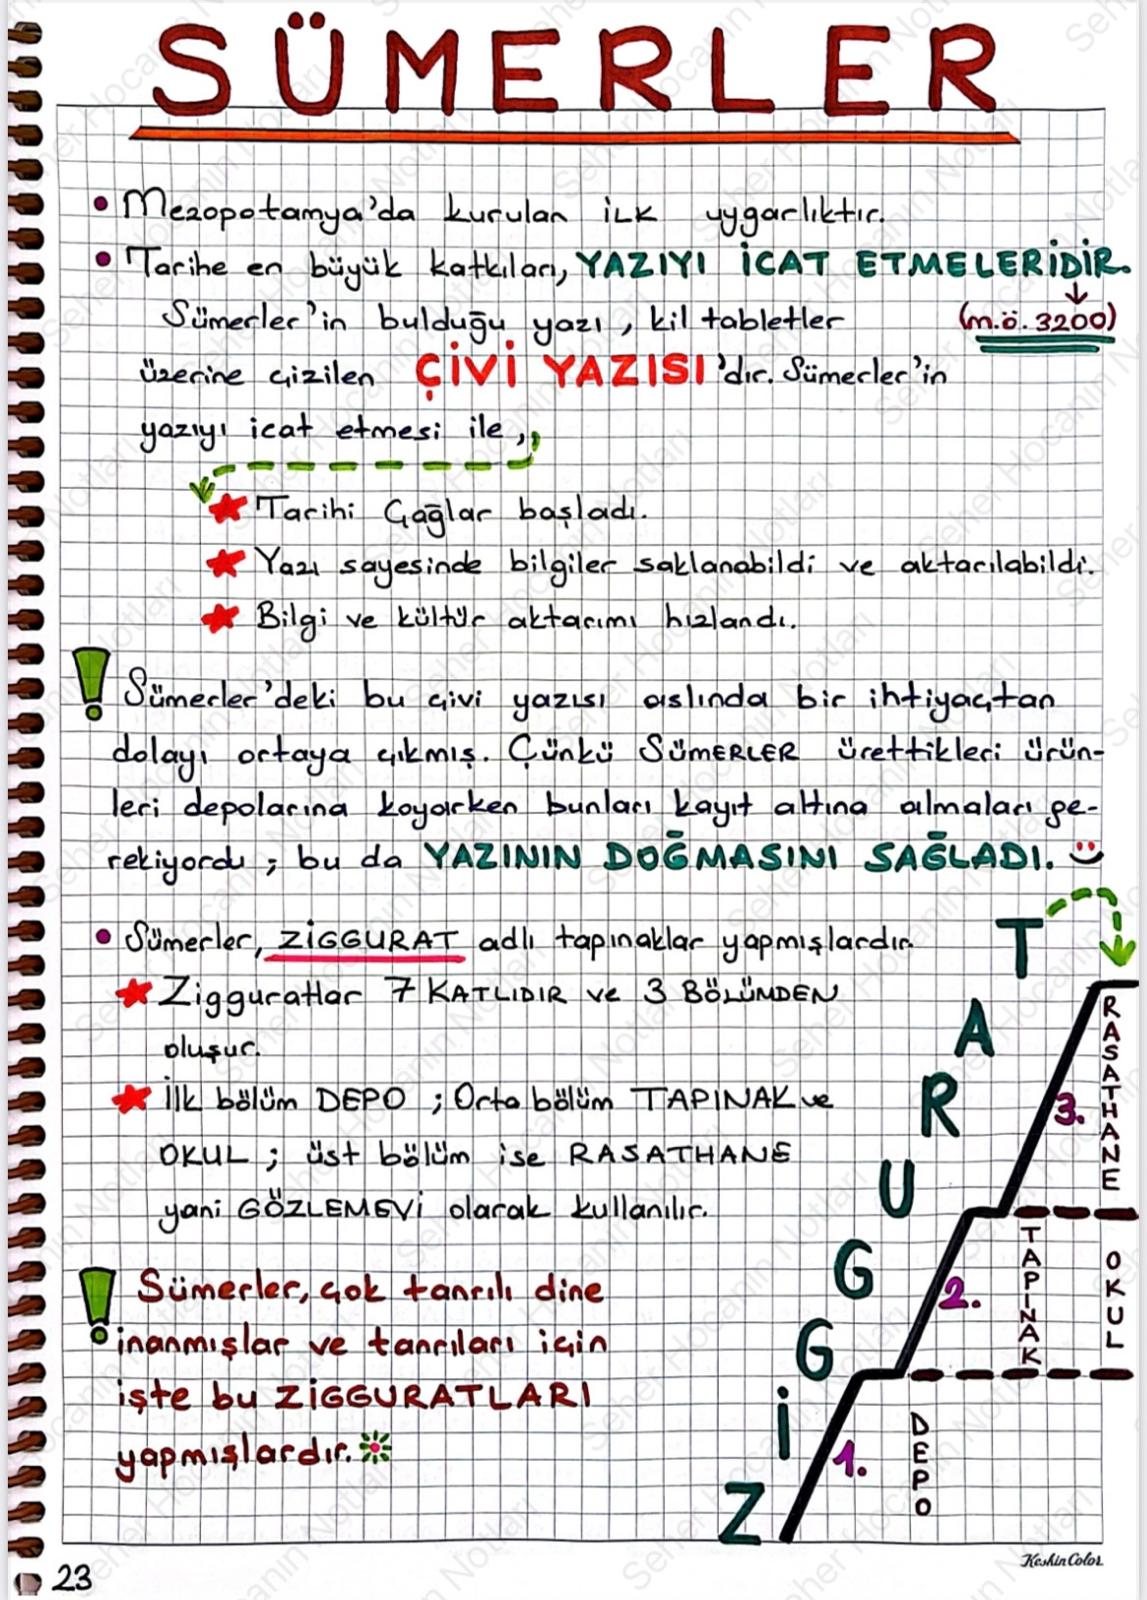 SÜMERLER
• Mezopotamya'da kurulan İLK uygarlıktır.
• Tarihe en büyük katkıları, YAZIYI İCAT ETMELERİDİR.
(m.ö. 3200)
Sümerler'in bulduğu yazı, kil tabletler
üzerine çizilen ÇİVİ YAZISI'dır. Sümerler'in
yazıyı icat etmesi ile,,
Tarihi Çağlar başladı.
Yazı sayesinde bilgiler saklanabildi ve aktarılabildi.
Bilgi ve kültür aktarımı hızlandı.
! Sümerler'deki bu çivi yazısı aslında bir ihtiyaçtan
dolayı ortaya çıkmış. Çünkü SÜMERLER ürettikleri ürün-
leri depolarına koyarken bunları kayıt altına almaları ge-
rekiyordu; bu da YAZININ DOĞMASINI SAĞLADI.
• Sümerler, ZİGGURAT adlı tapınaklar yapmışlardır.
Zigguratlar 7 KATLIDIR ve 3 BÖLÜMDEN
oluşur.
İlk bölüm DEPO; Orta bölüm TAPINAK ve
OKUL; üst bölüm ise RASATHANE
yani GÖZLEMEVİ olarak kullanılır.
! Sümerler, çok tanrılı dine
inanmışlar ve tanrıları için
işte bu ZİGGURATLARI
yapmışlardır.
ZİGGURAT
3. RASATHANE
2. TAPINAK OKUL
1. DEPO
KeskinColor
23
Seher Hocanın Notları